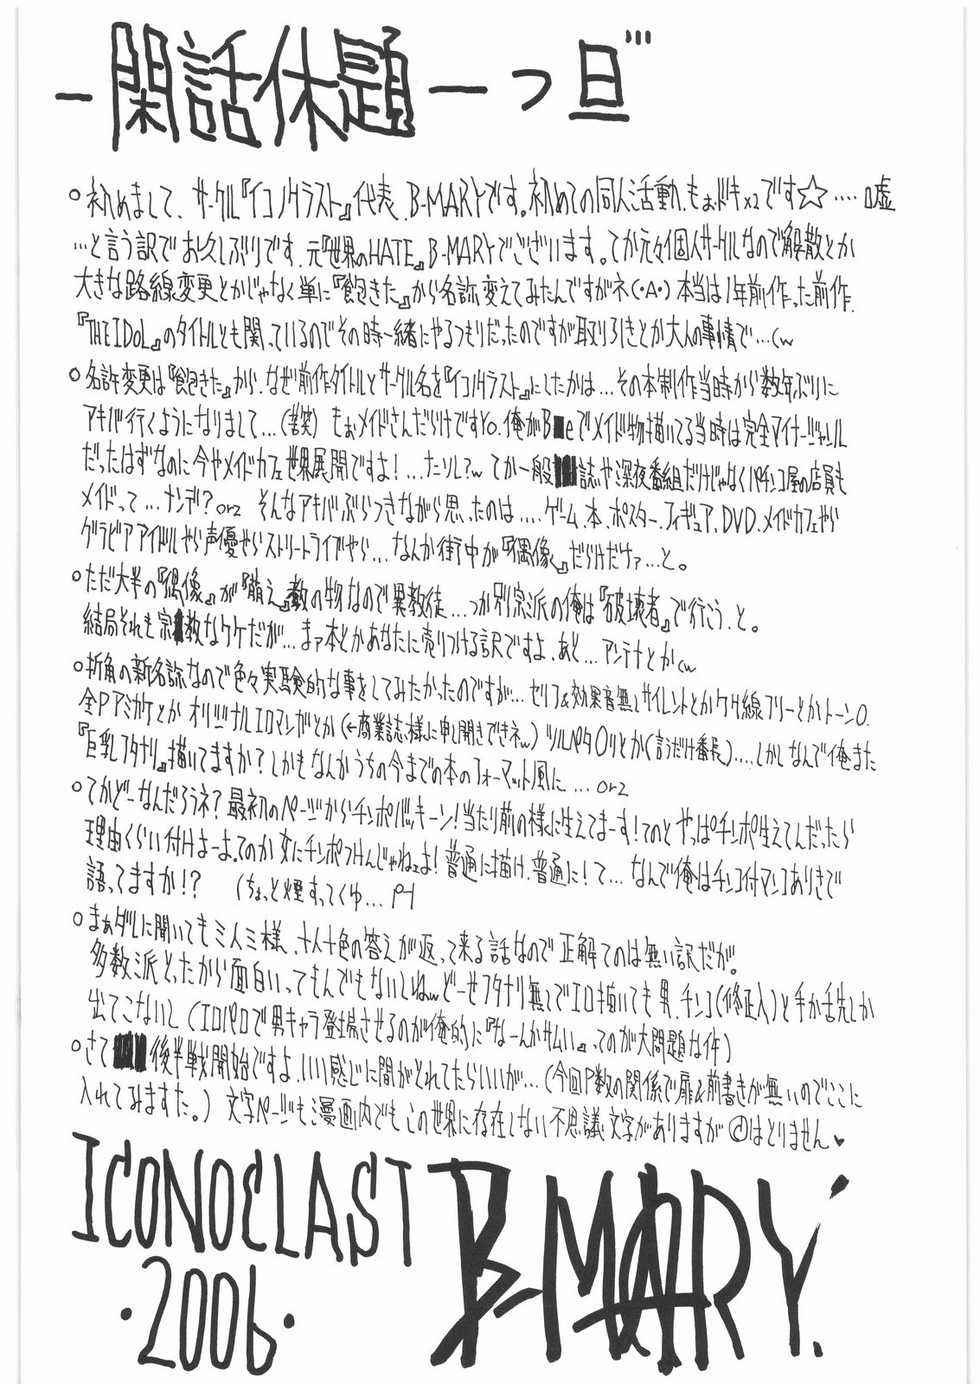 -閑話休題-一つ旦'''
○初めまして、サークル『イコノクラスト』代表、B-MARYです。初めての同人活動、もぉドキx2です☆‥‥嘘
…と言う訳でお久しぶりです、元『世界のHATE』B-MARYでございます。てか元々個人サークルなので解散とか
大きな路線変更とかじゃなく単に『飽きた』から名称変えてみたんですがネ(・A・)本当は1年前作った前作、
『THE IDOL』のタイトルとも関っているのでその時一緒にやるつもりだったのですが取り引きとか大人の事情で…(w
○名称変更は『飽きた』から、なぜ前作タイトルとサークル名を『イコノクラスト』にしたかは…その本制作当時から数年ぶりに
アキバ行くようになりまして…(苦笑) もぉメイドさんだらけですYO。俺がB■eでメイド物描いてる当時は完全マイナージャンル
だったはずなのに今やメイドカフェ世界展開ですよ!…たソレてw てか一般■誌や深夜番組だけじゃなくパチンコ屋の店員も
メイドって…ナンデ?orz そんなアキバぶらつきながら思ったのは‥‥ゲーム、本、ポスター、フィギュア、DVD、メイドカフェやら
グラビアアイドルやら声優やらストリートライブやら…なんか街中が『偶像』だらけだナァ…と。
○ただ大半の『偶像』が『萌え』教の物なので異教徒…つか別宗派の俺は『破壊者』で行こう、と。
結局それも宗教なワケだが…まァ本とかあなたに売りつける訳ですよ、あと…アンテナとか(w
○折角の新名称なので色々実験的な事をしてみたかったのですが…セリフ&効果音無しサイレントとかケシ線フリーとかトーン0、
全Pアミカケとか オリジナルエロマンガとか(←商業誌様に申し開きできネw)ツルペタロリとか(言うだけ番長)‥‥しかしなんで俺また
『巨乳フタナリ』描いてますか?しかもなんかうちの今までの本のフォーマット風に…orz
○てかどーなんだろうネ?最初のページからチンポバッキーン!当たり前の様に生えてまーす!てのと やっぱチンポ生えてんだったら
理由くらい付けよーよ。てのか 女にチンポつけんじゃねェよ!普通に描け、普通に!て…なんで俺はチンコ付マンコありきで
語ってますか!? (ちょっと煙すってくゆ…P-|
○まぁダレに聞いてもミんミ様、十人十色の答えが返って来る話なので正解てのは無い訳だが。
多数派とったから面白いってもんでもないしねw どーせフタナリ無しでエロ描いても男、チンコ(修正入)と手か舌先しか
出てこないし (エロパロで男キャラ登場させるのが俺的に『なーんかサムい』ってのが大問題な件)
○さて■後半戦開始ですよ、いい感じに間がとれてたらいいが…(今回P数の関係で扉&前書きが無いのでここに
入れてみますた。) 文字ページも漫画内でもこの世界に存在しない不思議文字がありますが ⓒはとりません♥
ICONOCLAST
・2006・
B-MARY.